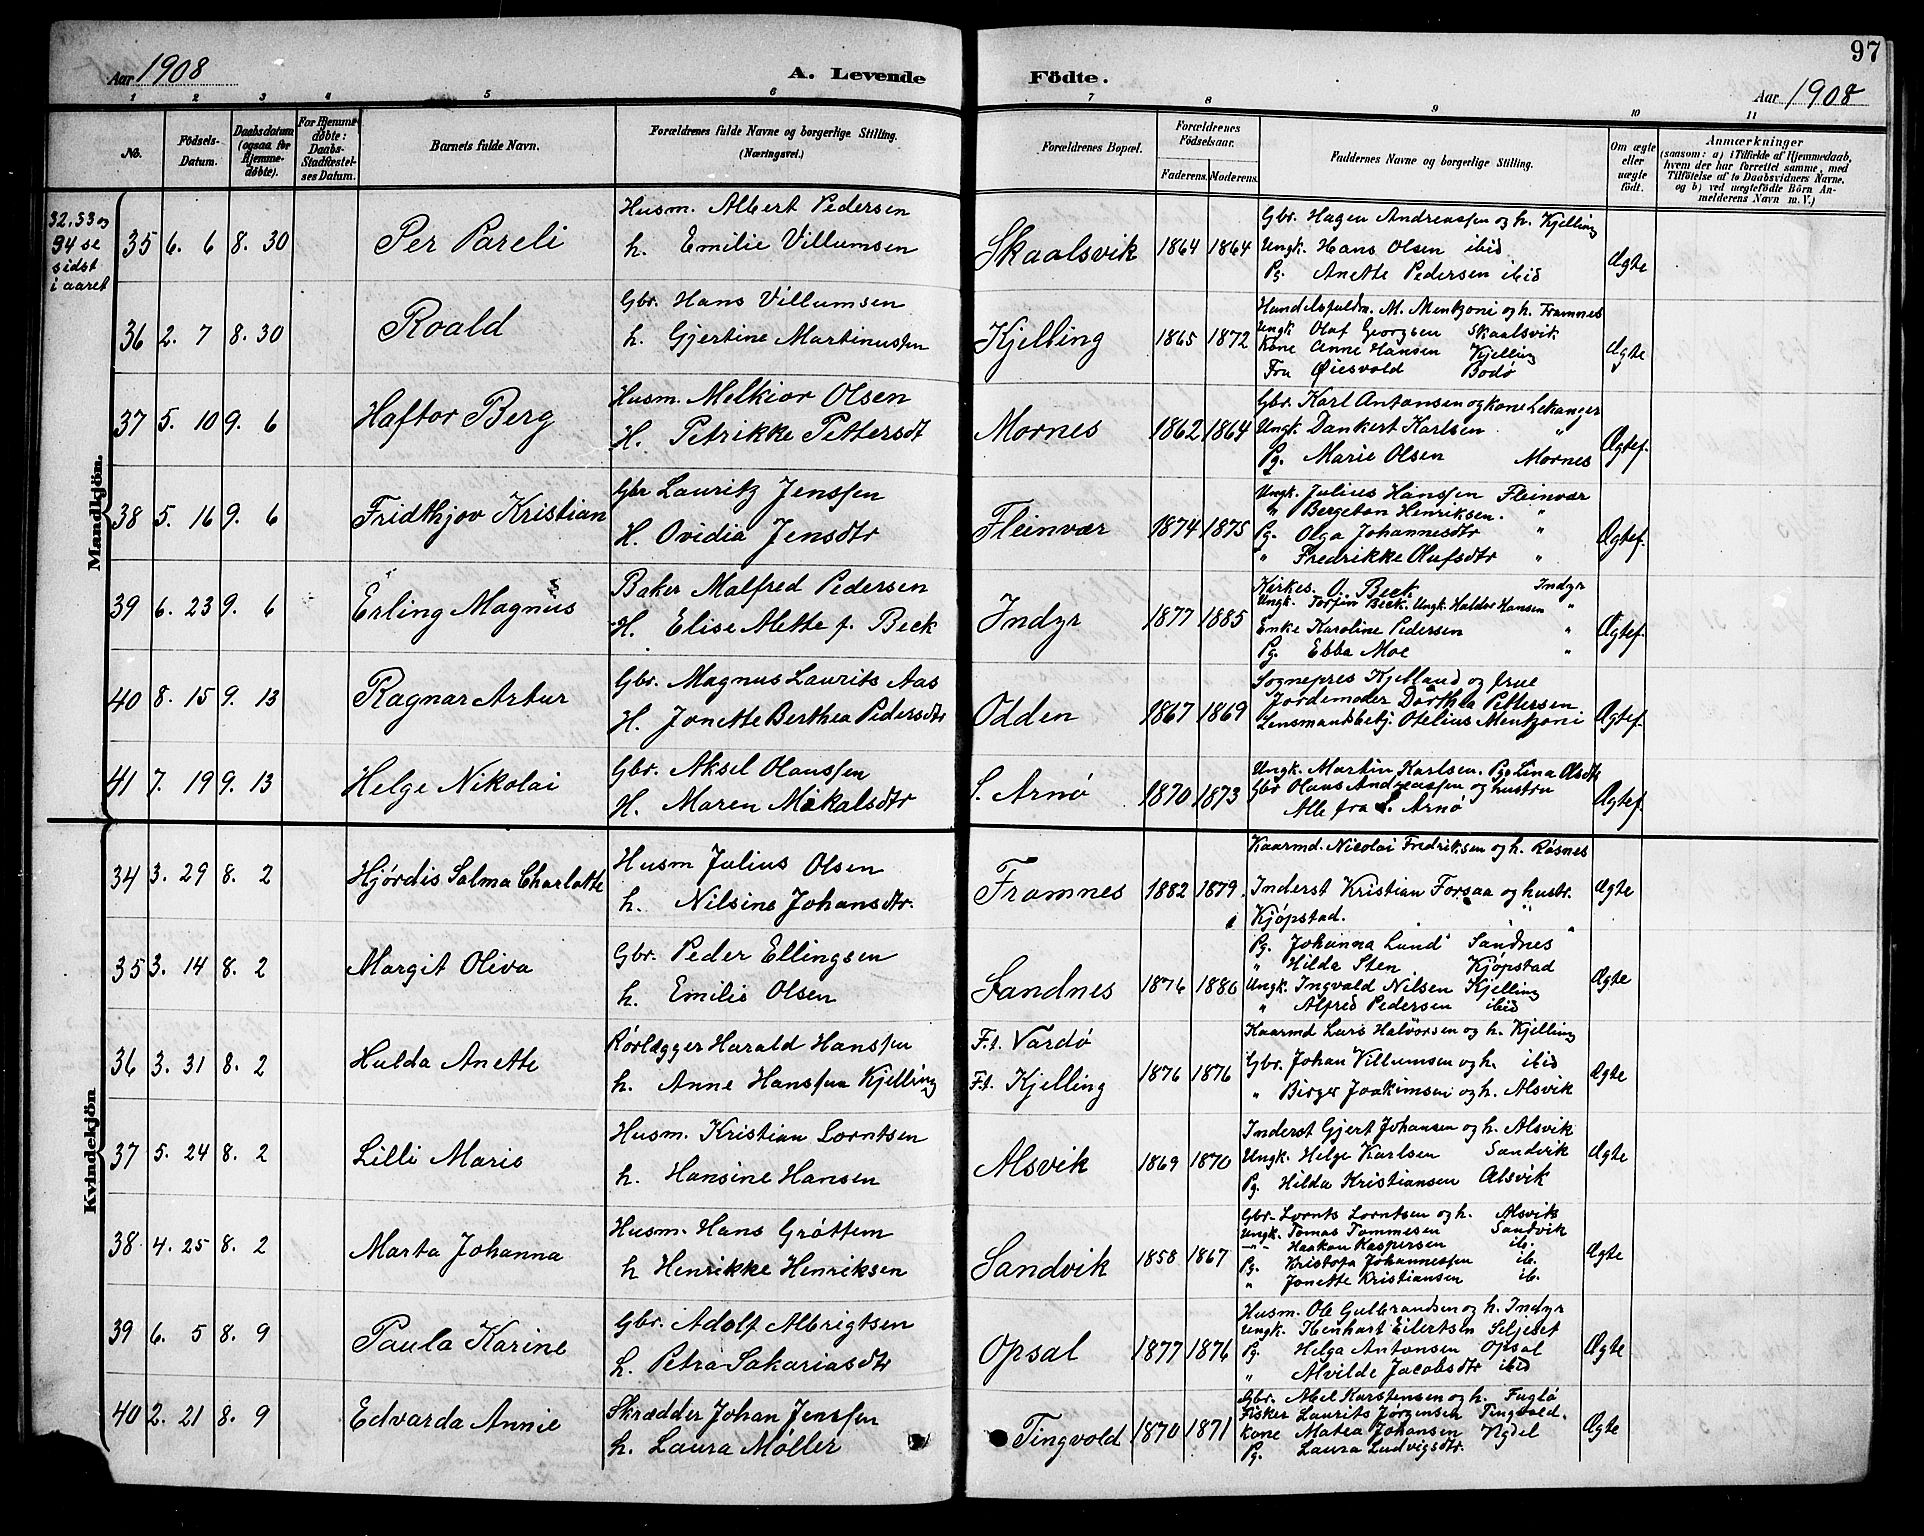 97
Aar 1908
A. Levende
Födte.
Aar 1908
1 2 3 4 5 6 7 8 9 10 11
No.
Födsels-
Datum.
Daabsdatum
(ogsaa for
Hjemme-
døbte).
For Hjemme-
döbte:
Daabs-
Stadfæstel-
ses Datum.
Barnets fulde Navn.
Forældrenes fulde Navne og borgerlige Stilling.
(Næringsvei.)
Forældrenes Bopæl.
Forældrenes
Födselsaar.
Faderens. Moderens.
Faddernes Navne og borgerlige Stilling.
Om ægte
eller
uægte
født.
Anmærkninger
(saasom: a) i Tilfælde af Hjemmedaab,
hvem der har forrettet samme, med
Tilföielse af to Daabsvidners Navne.
og b) ved uægtefödte Börn An-
melderens Navn m. V.)
32, 33 og
34 se
sidst
i aaret
Mandkjön.
35 6. 6 8. 30 Per Pareli
Husm. Albert Pedersen
h. Emilie Villumsen
Skaalsvik 1864 1864
Gbr. Hagen Andreassen og h. Kjelling
Ungk. Hans Olsen ibid
Pg. Anette Pedersen ibid
Ægte
36 2. 7 8. 30 Roald
Gbr. Hans Villumsen
h. Gjertine Martinussen
Kjelling 1865 1872
Handelsfuldm. M. Mentzoni og h. Framnes
Ungk Olaf Georgsen Skaalsvik
Kone Anne Hansen Kjelling
Fru Øiesvold Bodø
Ægte
37 5. 10 9. 6 Haftor Berg
Husm. Melkior Olsen
H. Petrikke Pettersdt
Mornes 1862 1864
Gbr. Karl Antonsen og kone Lekanger
Ungk. Dankert Karlsen "
Pg. Marie Olsen Mornes
Ægtef.
38 5. 16 9. 6 Fridthjov Kristian
Gbr Lauritz Jenssen
H. Ovidia Jensdtr
Fleinvær 1874 1875
Ungk. Julius Hanssen Fleinvær
" Bergeton Henriksen. "
Pg. Olga Johannesdtr "
" Fredrikke Olufsdtr "
Ægtef.
39 6. 23 9. 6 Erling Magnus
Baker Malfred Pedersen
H. Elise Mette f. Beck
Indyr 1877 1885
Kirkes. O. Beck Indyr
Ungk. Torfin Beck. Ungk. Haldor Hansen "
Enke Karoline Pedersen "
Pg. Ebba Moe "
Ægtef.
40 8. 15 9. 13 Ragnar Artur
Gbr. Magnus Laurits Aas
H. Jonette Berthea Pedersdtr
Odden 1867 1869
Sognepres Kjelland og frue
Jordemoder Dorthea Pettersen
Lensmandsbetj. Otelius Mentzoni
Ægtef.
41 7. 19 9. 13 Helge Nikolai
Gbr. Aksel Olaussen
H. Maren Mikalsdtr
S. Arnø 1870 1873
Ungk. Martin Karlsen. Pg. Lina Olsdtr
Gbr Olaus Andreassen og hustru
Alle fra S. Arnø
Ægtef.
Kvindekjön
34 3. 29 8. 2 Hjørdis Salma Charlotte
Husm Julius Olsen
h. Nilsine Johansdtr.
Framnes 1882 1879
Kaarmd. Nicolai Fredriksen og h. Røsnes
Inderst Kristian Forsaa og hustr. "
Kjøpstad. "
Ægte
35 3. 14 8. 2 Margit Oliva
Gbr. Peder Ellingsen
h. Emilie Olsen
Sandnes 1876 1880
Pg. Johanna Lund Sandnes
" Hilda Sten Kjøpstad
Ungk. Ingvald Nilsen Kjelling
" Alfred Pedersen ibid
Ægte
36 3. 31 8. 2 Hulda Anette
Rørlægger Harald Hanssen
h. Anne Hanssen Kjelling
F.t. Vardø
F.t. Kjelling 1876 1876
Kaarmd Lars Halvorsen og h. Kjelling
Gbr. Johan Villumsen og h. ibid
" Birger Joakimsen og h. Alsvik
Ægte
37 5. 24 8. 2 Lilli Marie
Husm. Kristian Lorntsen
h. Hansine Hansen
Alsvik 1869 1870
Inderst Gjert Johansen og h. Alsvik
Ungk. Helge Karlsen Sandvik
Pg. Hilda Kristiansen Alsvik
Ægte
38 4. 25 8. 2 Marta Johanna
Husm. Hans Grøttem
h Henrikke Henriksen
Sandvik 1858 1867
Gbr. Lornts Lorntsen og h. Alsvik
Ungk. Tomas Tommesen Sandvik
-"- Haakon Kaspersen ib.
Pg. Kristofa Johannessen ib.
" Jonette Kristiansen ib.
Ægte
39 6. 5 8. 9 Paula Karine
Gbr. Adolf Albrigtsen
h. Petra Sakariasdtr
Opsal 1877 1876
Husm. Ole Gulbrandsen og h. Indyr
Ungk. Henhart Eilertsen Seljeset
Pg. Helga Antonsen Opsal
" Alvilde Jacobsdtr ibid
Ægte
40 2. 21 8. 9 Edvarda Annie
Skrædder Johan Jenssen
h. Laura Møller
Tingvold 1870 1871
Gbr. Abel Karstensen og h. Fuglø
Fisker Laurits Jørgensen Tingvold.
Kone Matea Johansen Nydel
Pg. Laura Ludvigsdtr.
Ægte